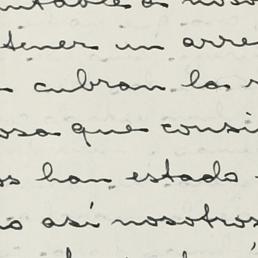 tener un arre
cubran la
osa que consi
os han estado
o así nosotros